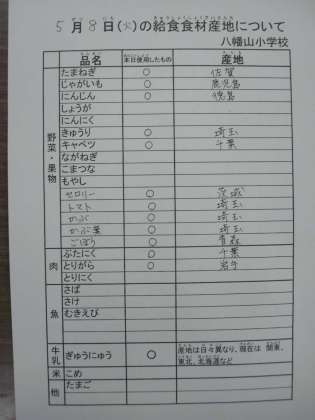 5月8日(火)の給食食材産地について
八幡山小学校
品名 本日使用したもの 産地
野菜・果物
たまねぎ ○ 佐賀
じゃがいも ○ 鹿児島
にんじん ○ 徳島
しょうが
にんにく
きゅうり ○ 埼玉
キャベツ ○ 千葉
ながねぎ
こまつな
もやし
セロリー ○ 茨城
トマト ○ 埼玉
かぶ ○ 埼玉
かぶ葉 ○ 埼玉
ごぼう ○ 青森
肉
ぶたにく ○ 千葉
とりがら ○ 岩手
とりにく
魚
さば
さけ
むきえび
牛乳 ぎゅうにゅう ○ 産地は日々異なり、現在は 関東、
東北、北海道など
米 こめ
他 たまご